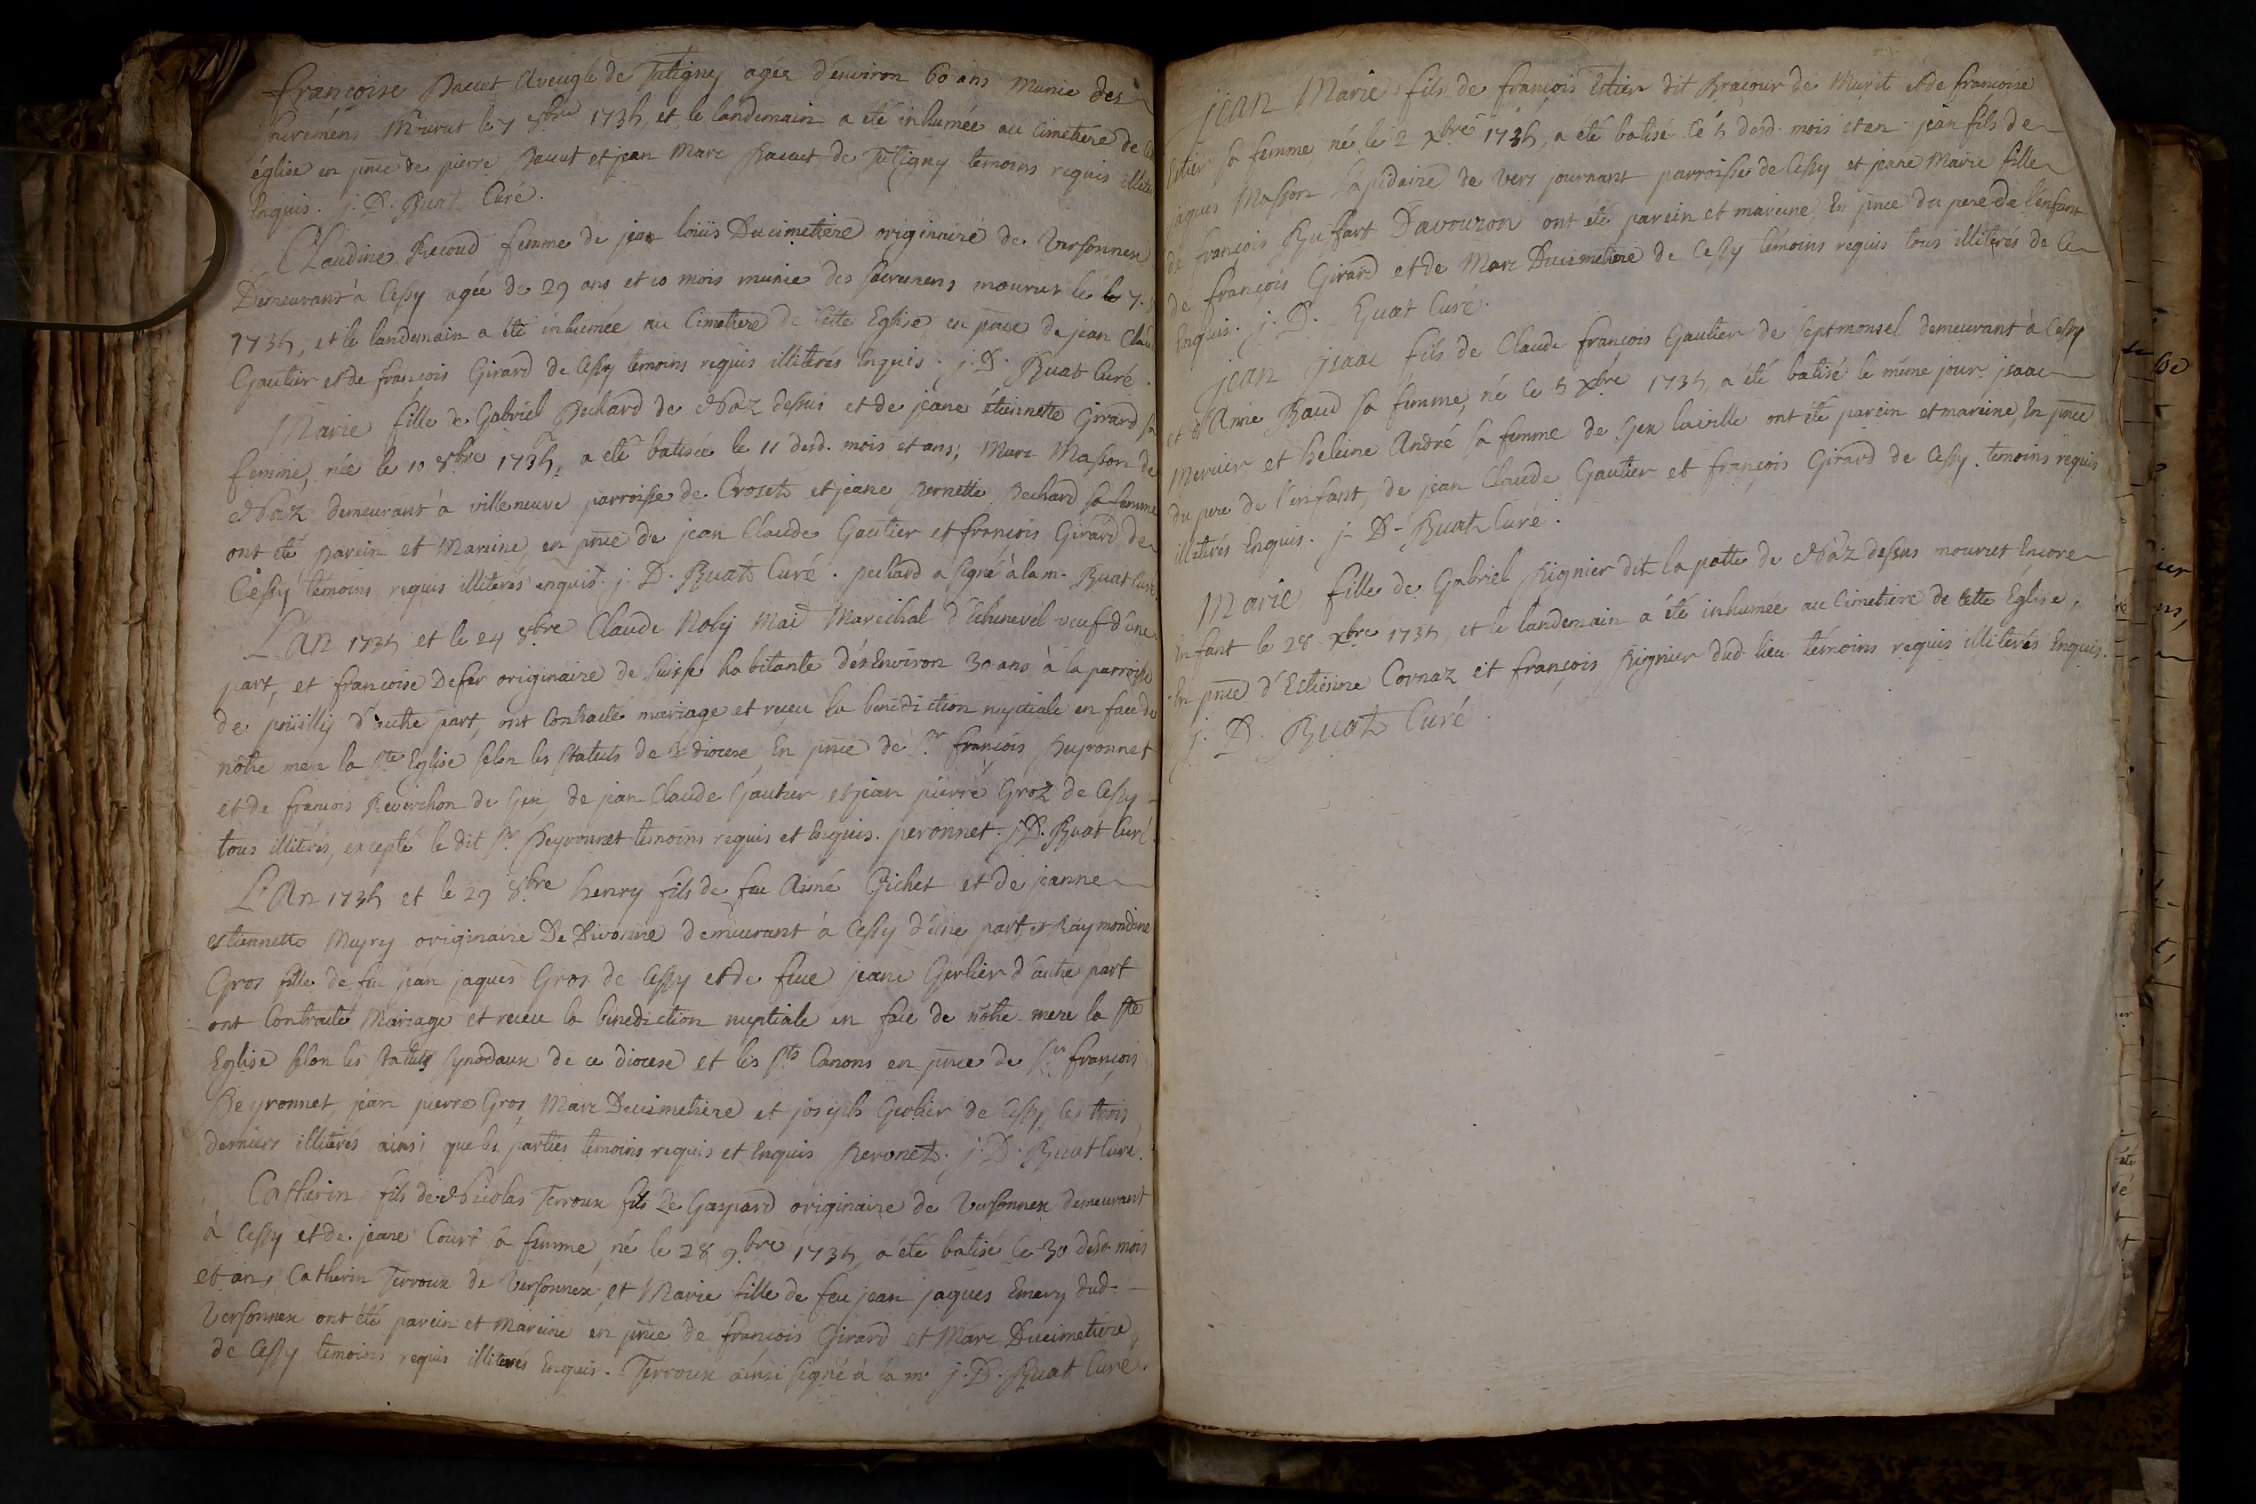 françoise Pacut Aveugle de Tutigny agée d'environ 60 ans Munie des
sacremens Mourut le 7 8bre 1735, et le landemain a été inhumée au Cimetiere de
église en pnce de pierre Pacut et jean Marc Pacut de Tutigny temoins requis
Enquis. j. D. Buat Curé.
Claudine Recoud femme de jean loüis Ducimetiere originaire de Versonnex
Demeurant à Cessy agée de 29 ans et 10 mois munie des sacremens mourut le 7.
1735, et le landemain a été inhumée au Cimetiere de Cette Eglise en pnce de jean
Gautier et de françois Girard de Cessy temoins requis illiterés Enquis. j. D. Buat Curé.
Marie fille de Gabriel Pechard de Naz dessus et de jeane étiennette Girard sa
femme, née le 10 8bre 1735, a été batisée le 11 desd. mois et ans; Marc Masson de
Naz demeurant à villeneuve parroisse de Crozet et jeane pernette Pechard sa femme
ont été parein et Mareine, en pnce de jean Claude Gautier et françois Girard de
Cessy témoins requis illiterés enquis. j. D. Buat Curé. pechard a signé à la m. Buat Curé.
L'An 1735 et le 24 8bre Claude Noly Marechal d'Echenevel veuf d'une
part, et francoise Defer originaire de Suisse habitante dés Environ 30 ans à la parroisse
de poüilly d'autre part, ont Contracté mariage et receu la benediction nuptiale en face de
nôtre mere la Ste Eglise selon les statuts de ce diocese, En pnce de Sr françois Peyronnet
et de françois Reverchon de Gex, de jean Claude Gautier et jean pierre Groz de Cessy
tous illiterés, excepté le dit Sr Peyronnet temoins requis et Enquis. peronnet. j. D. Buat Curé
L'An 1735 et le 29 8bre henry fils de feu Aimé Gichet et de jeanne
estiennette Meyry originaire De Divonne demeurant à Cessy d'une part, et Raymondine
Gros fille de feu jean jaques Gros de Cessy et de feue jeane Gerlier d'autre part
ont Contracté Mariage et receu la benediction nuptiale en face de nôtre mere la Ste
Eglise selon les statuts synodaux de ce diocese et les Sts Canons en pnce de Sr françois
Peyronnet, jean pierre Gros, Marc Ducimetiere et joseph Gerlier de Cessy, les trois
derniers illiterés ainsi que les parties temoins requis et Enquis Peronet. j. D. Buat Curé.
Catherin fils de Nicolas Terroux fils de Gaspard originaire de Versonnex demeurant
à Cessy et de jeane Court sa femme, né le 28 9bre 1735, a été batisé le 30 desd. mois
et an, Catherin Terroux de Versonnex, et Marie fille de feu jean jaques Emery dud.
Versonnex ont été parein et mareine en pnce de francois Girard et Marc Ducimetiere
de Cessy temoins requis illiterés Enquis. Terroux ainsi signé à la m. j. D. Buat Curé.
jean Marie fils de françois Estier dit Bracour de Murit et de françoise
Estier sa femme né le 2 Xbre 1735, a été batisé le 5 desd. mois et an jean fils de
jaques Masson Lapidaire de Vers journant parroisse de Cessy et jeane Marie fille
de françois Bussart D'avouzon ont été parein et mareine, En pnce du pere de l'enfant
de françois Girard et de Marc Ducimetiere de Cessy témoins requis tous illiterés de ce
Enquis. j. D. Buat Curé.
jean jsaac fils de Claude françois Gautier de septmonsel demeurant à Cessy
et d'Anne Baud sa femme, né le 5 Xbre 1735, a été batisé le même jour. jsaac
Mercier et heleine André sa femme de Gex la ville ont été parein et mareine, En pnce
du pere de l'enfant, de jean Claude Gautier et françois Girard de Cessy. temoins requis
illiterés Enquis. j. D. Buat Curé.
Marie fille de Gabriel Pignier dit la patte de Naz dessus mourut Encore
Enfant le 28 Xbre 1735, et le landemain a été inhumée au Cimetiere de Cette Eglise,
En pnce d'Estienne Cornaz et françois Pignier dud. lieu témoins requis illiterés Enquis.
j. D. Buat Curé.